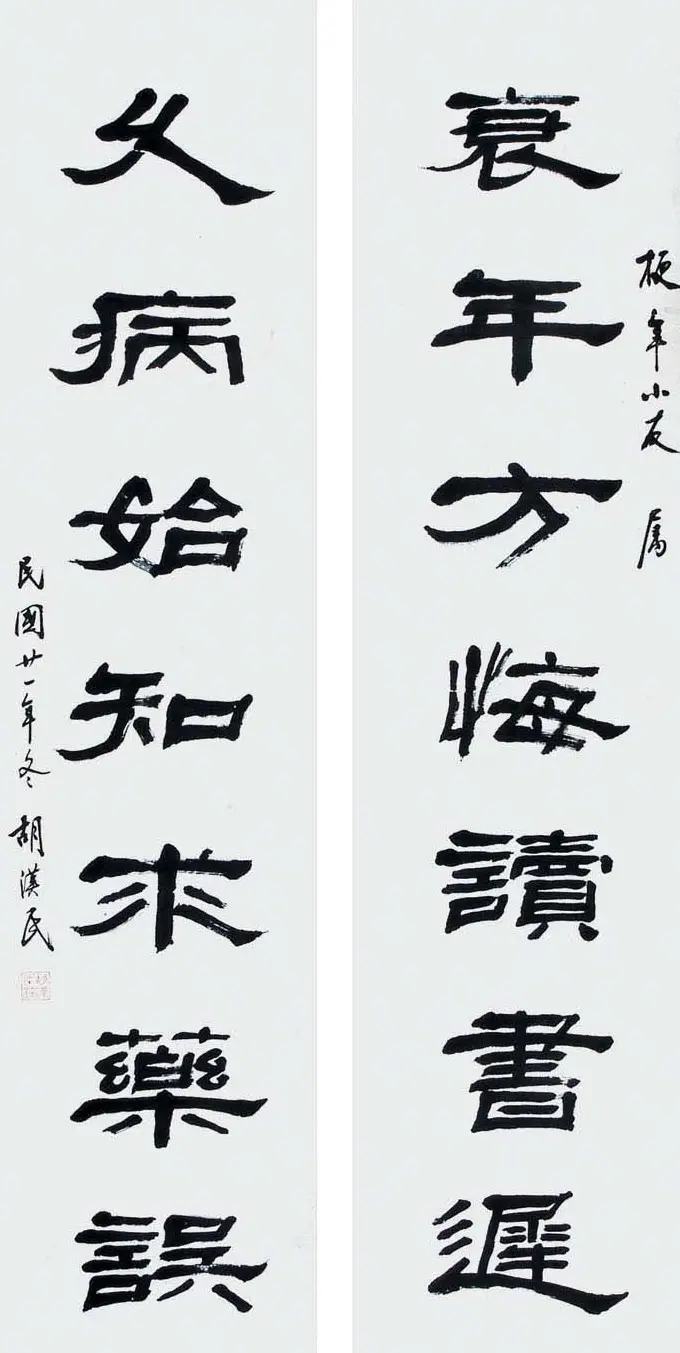 年小友 属
衰年方悔讀書遲
久病始知求藥誤
民國廿一年冬 胡漢民